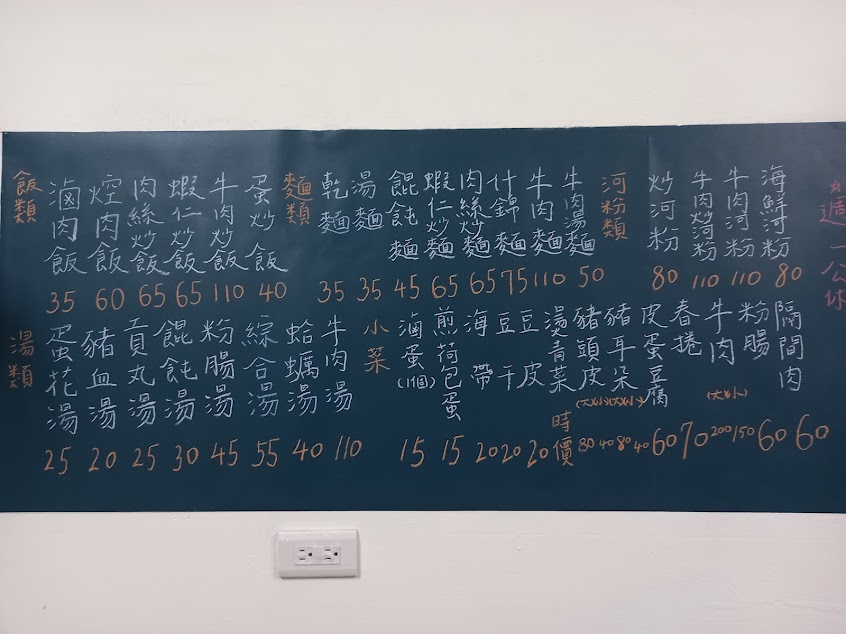 飯類
滷肉飯 35
焢肉飯 60
肉絲炒飯 65
蝦仁炒飯 65
牛肉炒飯 110
蛋炒飯 40
麵類
乾麵 35
湯麵 35
餛飩麵 45
蝦仁炒麵 65
肉絲炒麵 65
什錦麵 75
牛肉麵 110
牛肉湯麵 50
河粉類
炒河粉 80
牛肉炒河粉 110
牛肉河粉 110
海鮮河粉 80
週一公休
湯類
蛋花湯 25
豬血湯 20
貢丸湯 25
餛飩湯 30
粉腸湯 45
綜合湯 55
蛤蠣湯 40
牛肉湯 110
小菜
滷蛋(1個) 15
煎荷包蛋 15
海帶 20
豆干 20
豆皮 20
燙青菜 時價
豬頭皮(大)(小) 80 40
豬耳朵(大)(小) 80 40
皮蛋豆腐 60
春捲 70
牛肉(大)(小) 200 150
粉腸 60
隔間肉 60